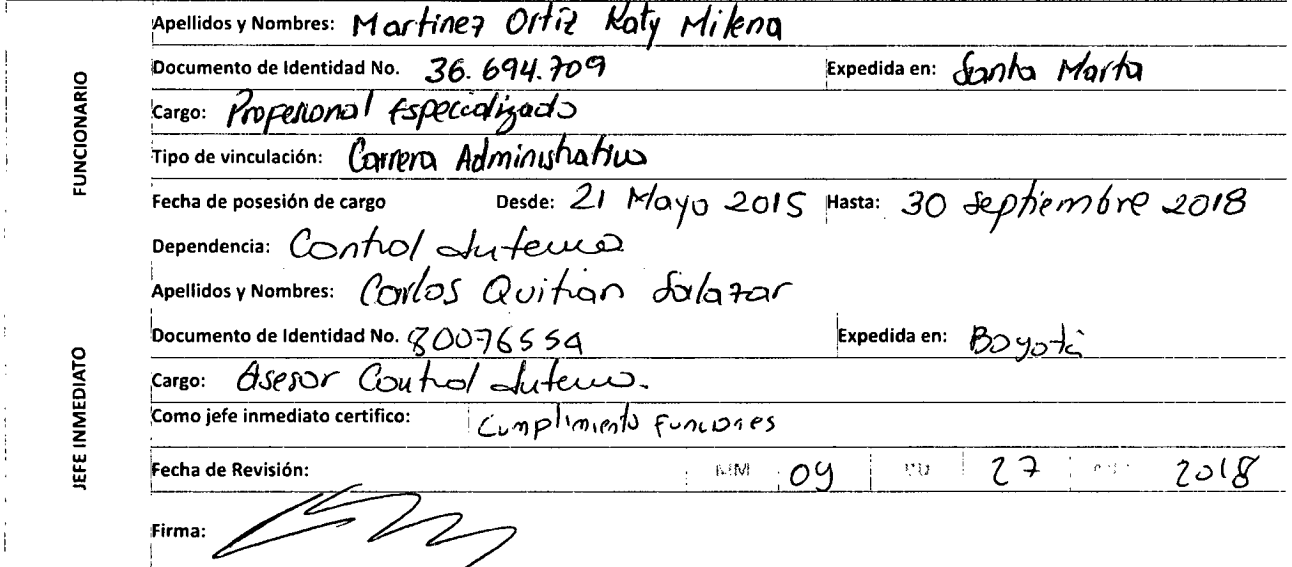 Apellidos y Nombres: Martinez Ortiz Katy Milena
Documento de Identidad No. 36.694.709 Expedida en: Santa Marta
FUNCIONARIO
Cargo: Profesional Especializado
Tipo de vinculación: Carrera Administrativa
Fecha de posesión de cargo Desde: 21 Mayo 2015 Hasta: 30 Septiembre 2018
Dependencia: Control Interno
Apellidos y Nombres: Carlos Quitian Salazar
Documento de Identidad No. 80076554 Expedida en: Bogotá
JEFE INMEDIATO
Cargo: Asesor Control Interno.
Como jefe inmediato certifico: Cumplimiento Funciones
Fecha de Revisión: MM 09 DD 27 2018
Firma: